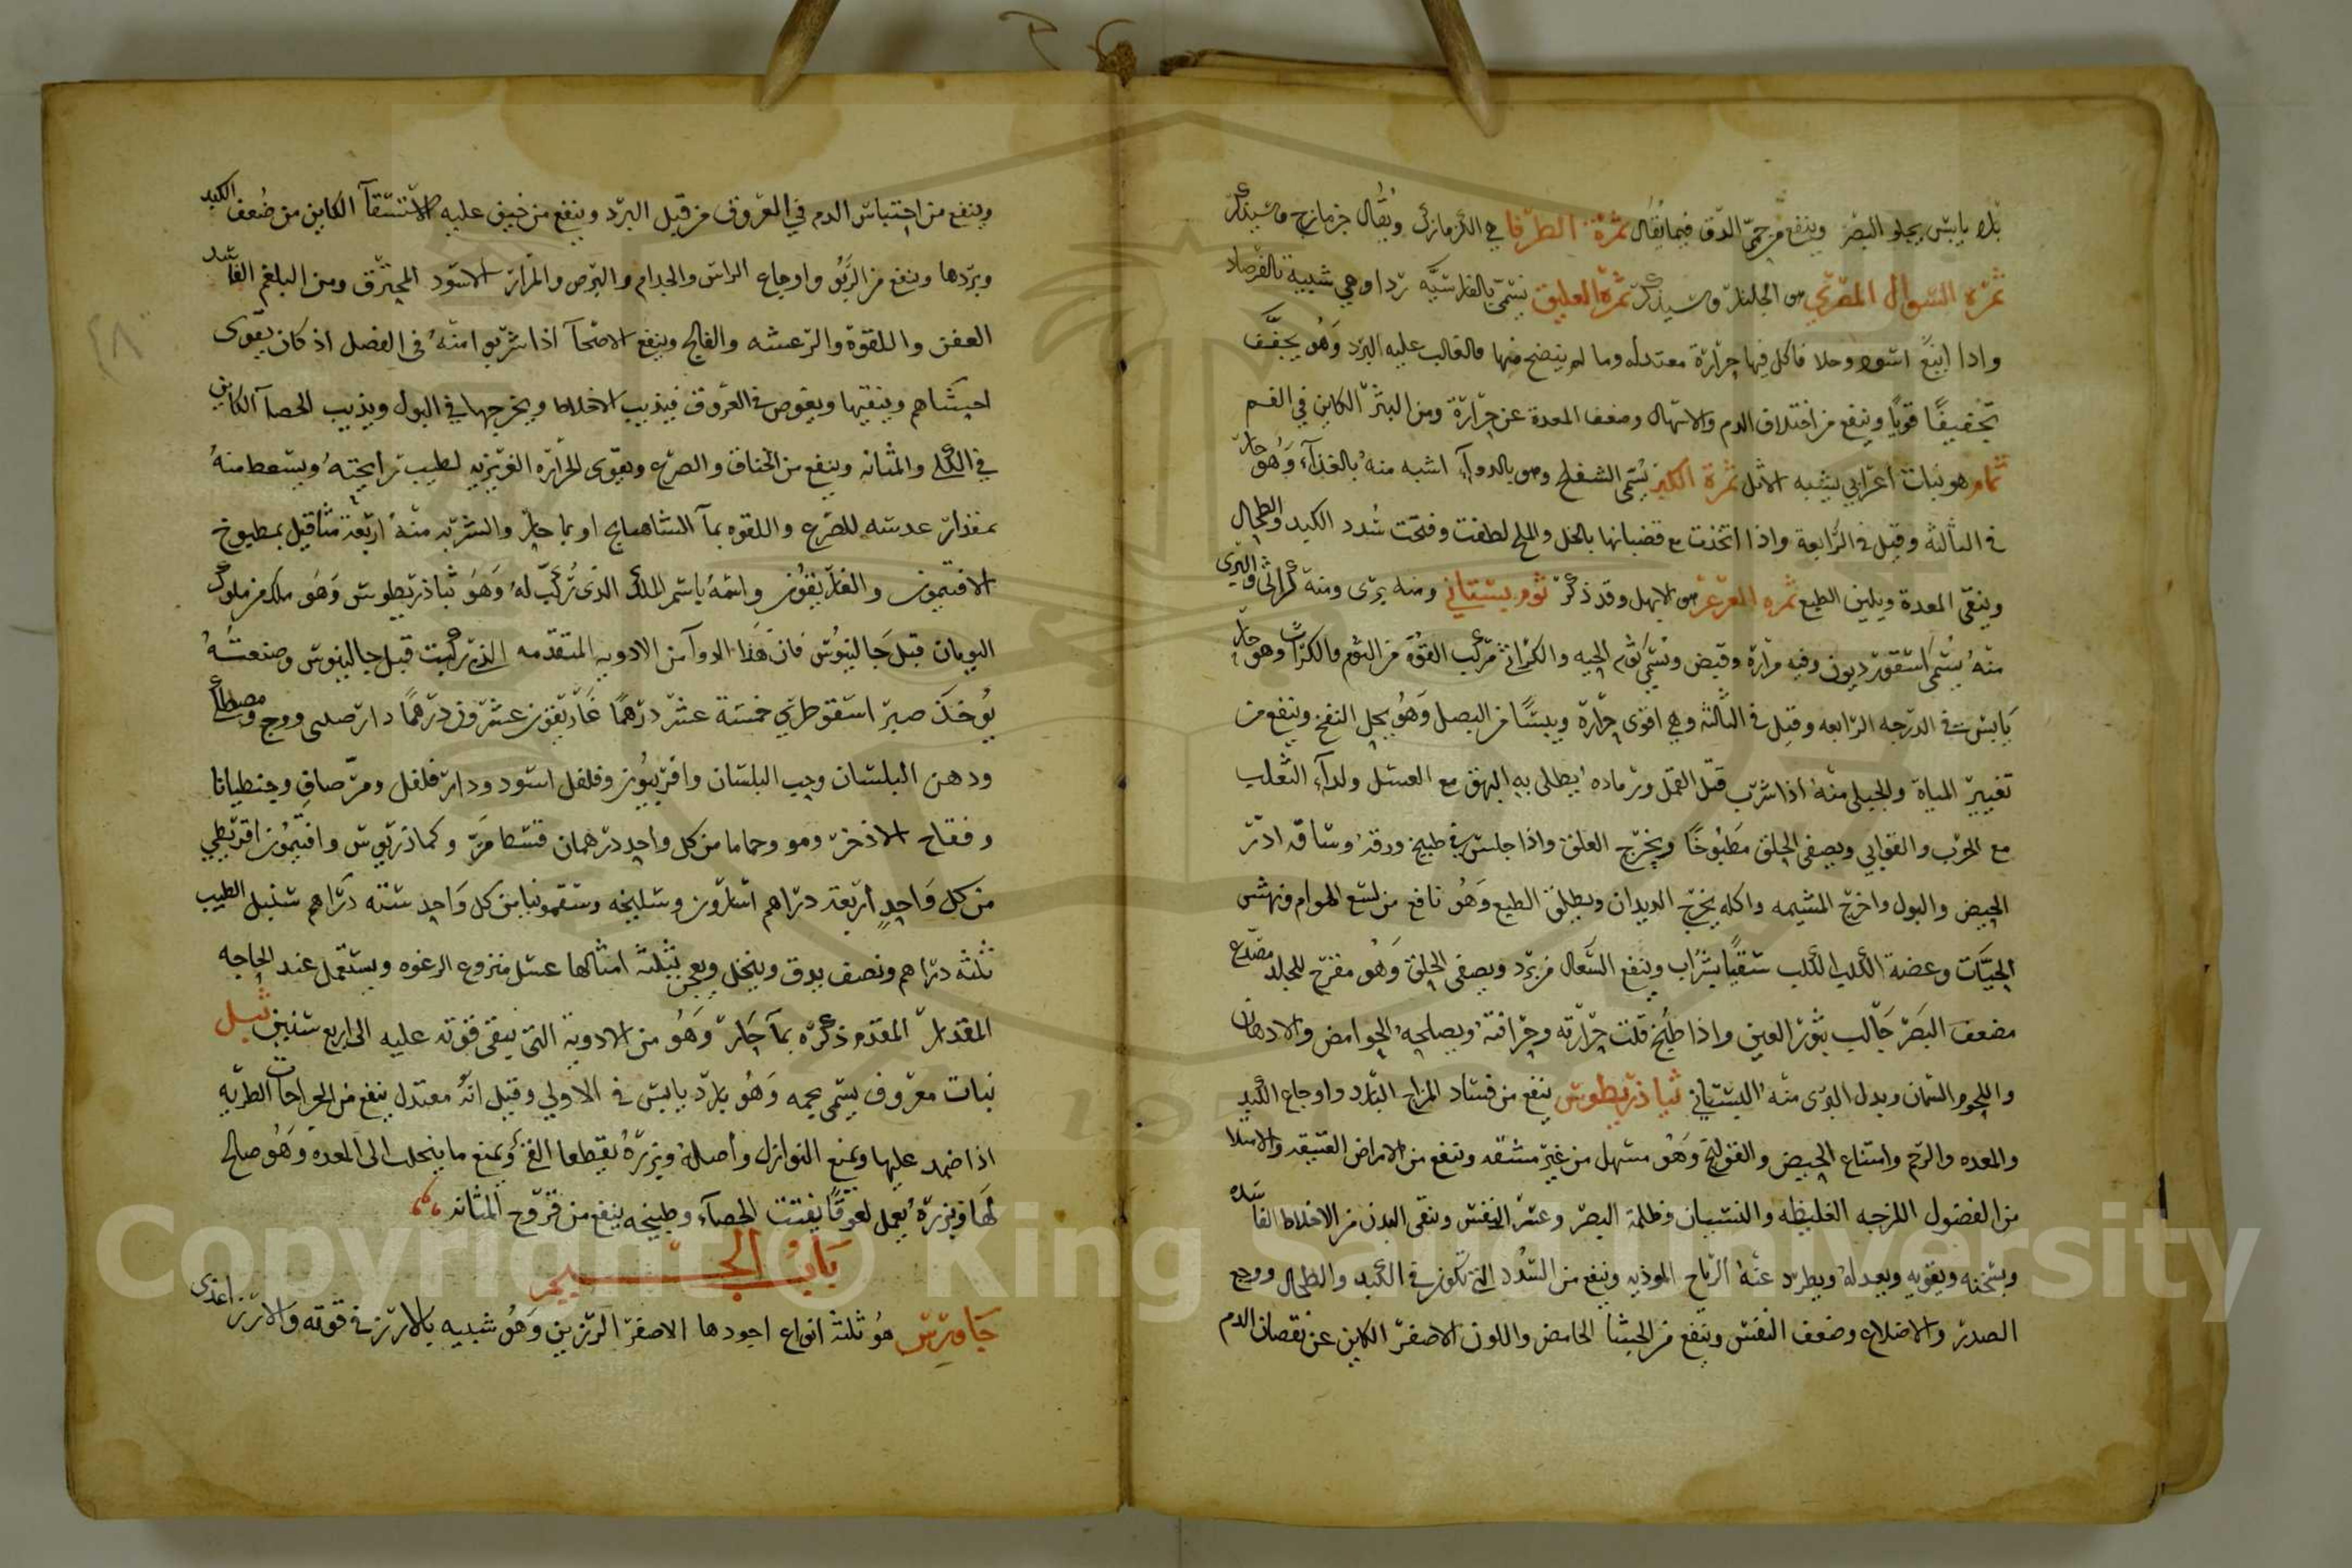 يابس يجلو البصر وينفع من حمى الدق فيما يقال ثمرة الطرفا هي الكزمازك ويقال جزمازج وسيذكر
ثمرة السوال المصري هو الجلنار وسيذكر ثمرة العليق تسمى بالفارسية وهي شبيهة بالفرصاد
واذا اينع اسود وحلا فاكل فيها حرارة معتدلة وما لم ينضج منها فالغالب عليه البرد وهو يجفف
تجفيفا قويا وينفع من اختلاف الدم والاسهال وضعف المعدة عن حرارة ومن البثر الكاين في الفم
ثمام هو نبات اعرابي يشبه الاثل ثمرة الكبر يسمى الشفلح وهو بالدواء اشبه منه بالغذاء وهو حار
في الثالثة وقيل في الرابعة واذا اتخذت مع قضبانها بالخل والملح لطفت وفتحت سدد الكبد والطحال
وينقي المعدة ويلين الطبع ثمره العرعر هو الابهل وقد ذكر ثوم بستاني ومنه بري ومنه كراثي والبري
منه يسمى اسقورديون وفيه مرارة وقبض ويسمى ثوم الحيه والكراثي مركب القوة من الثوم والكراث وهو حار
يابس في الدرجه الرابعه وقيل في الثالثة وهي اقوى حرارة ويبسا من البصل وهو يحل النفخ وينفع من
تغيير المياة والجبلي منه اذا شرب قتل القمل ورماده يطلى به البهق مع العسل ولداء الثعلب
مع الجرب والقوابي ويصفي الحلق مطبوخا ويخرج العلق واذا جلس في طبيخ ورقه وساقه ادر
الحيض والبول واخرج المشيمه واكله يخرج الديدان ويطلق الطبع وهو نافع من لسع الهوام ونهش
الحيات وعضة الكلب الكلب سقيا بشراب وينفع السعال من برد ويصفي الحلق وهو مقرح للجلد مصدع
مضعف البصر جالب بثور العين واذا طبخ قلت حرارته وحرافته ويصلحه الحوامض والادهان
واللحوم السمان وبدل البري منه البستاني ثباذريطوس ينفع من فساد المزاج البارد واوجاع الكبد
والمعده والرحم وامتناع الحيض والقولنج وهو مسهل من غير مشقه وينفع من الامراض العتيقه والامتلا
من الفضول اللزجه الغليظه والنسيان وظلمة البصر وعسر النفس وينقي البدن من الاخلاط الفاسده
ويسخنه ويقويه ويعدله ويطرد عنه الرياح الموذيه وينفع من السدد التي تكون في الكبد والطحال ووجع
الصدر والاضلاع وضعف النفس وينفع من الجشا الحامض واللون الاصفر الكاين عن نقصان الدم
وينفع من احتباس الدم في العروق من قبل البرد وينفع من خيف عليه الاستسقا الكاين من ضعف الكبد
وبردها وينفع من الربو واوجاع الراس والجذام والبرص والمرار الاسود المحترق ومن البلغم الفاسد
العفن واللقوة والرعشه والفالج وينفع الاصحا اذا شربوا منه في الفصل اذ كان يقوى
احشاهم وينقيها ويغوص في العروق فيذيب الاخلاط ويخرجها في البول ويذيب الحصا الكاين
في الكلى والمثانه وينفع من الخناق والصرع ويقوي الحرارة الغريزيه لطيب رايحته ويستعط منه
بمقدار عدسه للصرع واللقوه بما الشاهسابج او بما حار والشربه منه اربعة مثاقيل بمطبوخ
الافتيمون والغاريقون واسمه باسم الملك الذي ركب له وهو ثباذريطوس وهو ملك من ملوك
اليونان قبل جالينوس فان هذا الدوا من الادويه المتقدمه الذي ركبت قبل جالينوس وصنعته
يوخذ صبر اسقوطري خمسة عشر درهما غاريقون عشرون درهما دارصيني ووج ومصطكا
ودهن البلسان وحب البلسان وافربيون وفلفل اسود ودار فلفل ومر صافي وجنطيانا
وفقاح الاذخر ومو وحماما من كل واحد درهمان قسط مر وكماذريوس وافتيمون اقريطي
من كل واحد اربعة دراهم اسارون وسليخه وسقمونيا من كل واحد ستة دراهم سنبل الطيب
ثلثه دراهم ونصف يدق وينخل ويعجن بثلثه امثالها عسل منزوع الرغوه ويستعمل عند الحاجه
المقدار المقدم ذكره بما حار وهو من الادوية التي تبقى قوته عليه الى اربع سنين ثيل
نبات معروف يسمى نجمه وهو بارد يابس في الاولي وقيل انه معتدل ينفع من الجراحات الطريه
اذا ضمد عليها ويمنع النوازل واصله وبزره يقطعا القي ويمنع ما ينحلب الى المعده وهو صالح
لها وبزره يعمل لعوقا يفتت الحصاء وطبيخه ينفع من قروح المثانه
باب الجيم
جاورس هو ثلثة انواع اجودها الاصفر الرزين وهو شبيه بالارز في قوته والارز اغذى
٢٨
Copyright © King Saud University